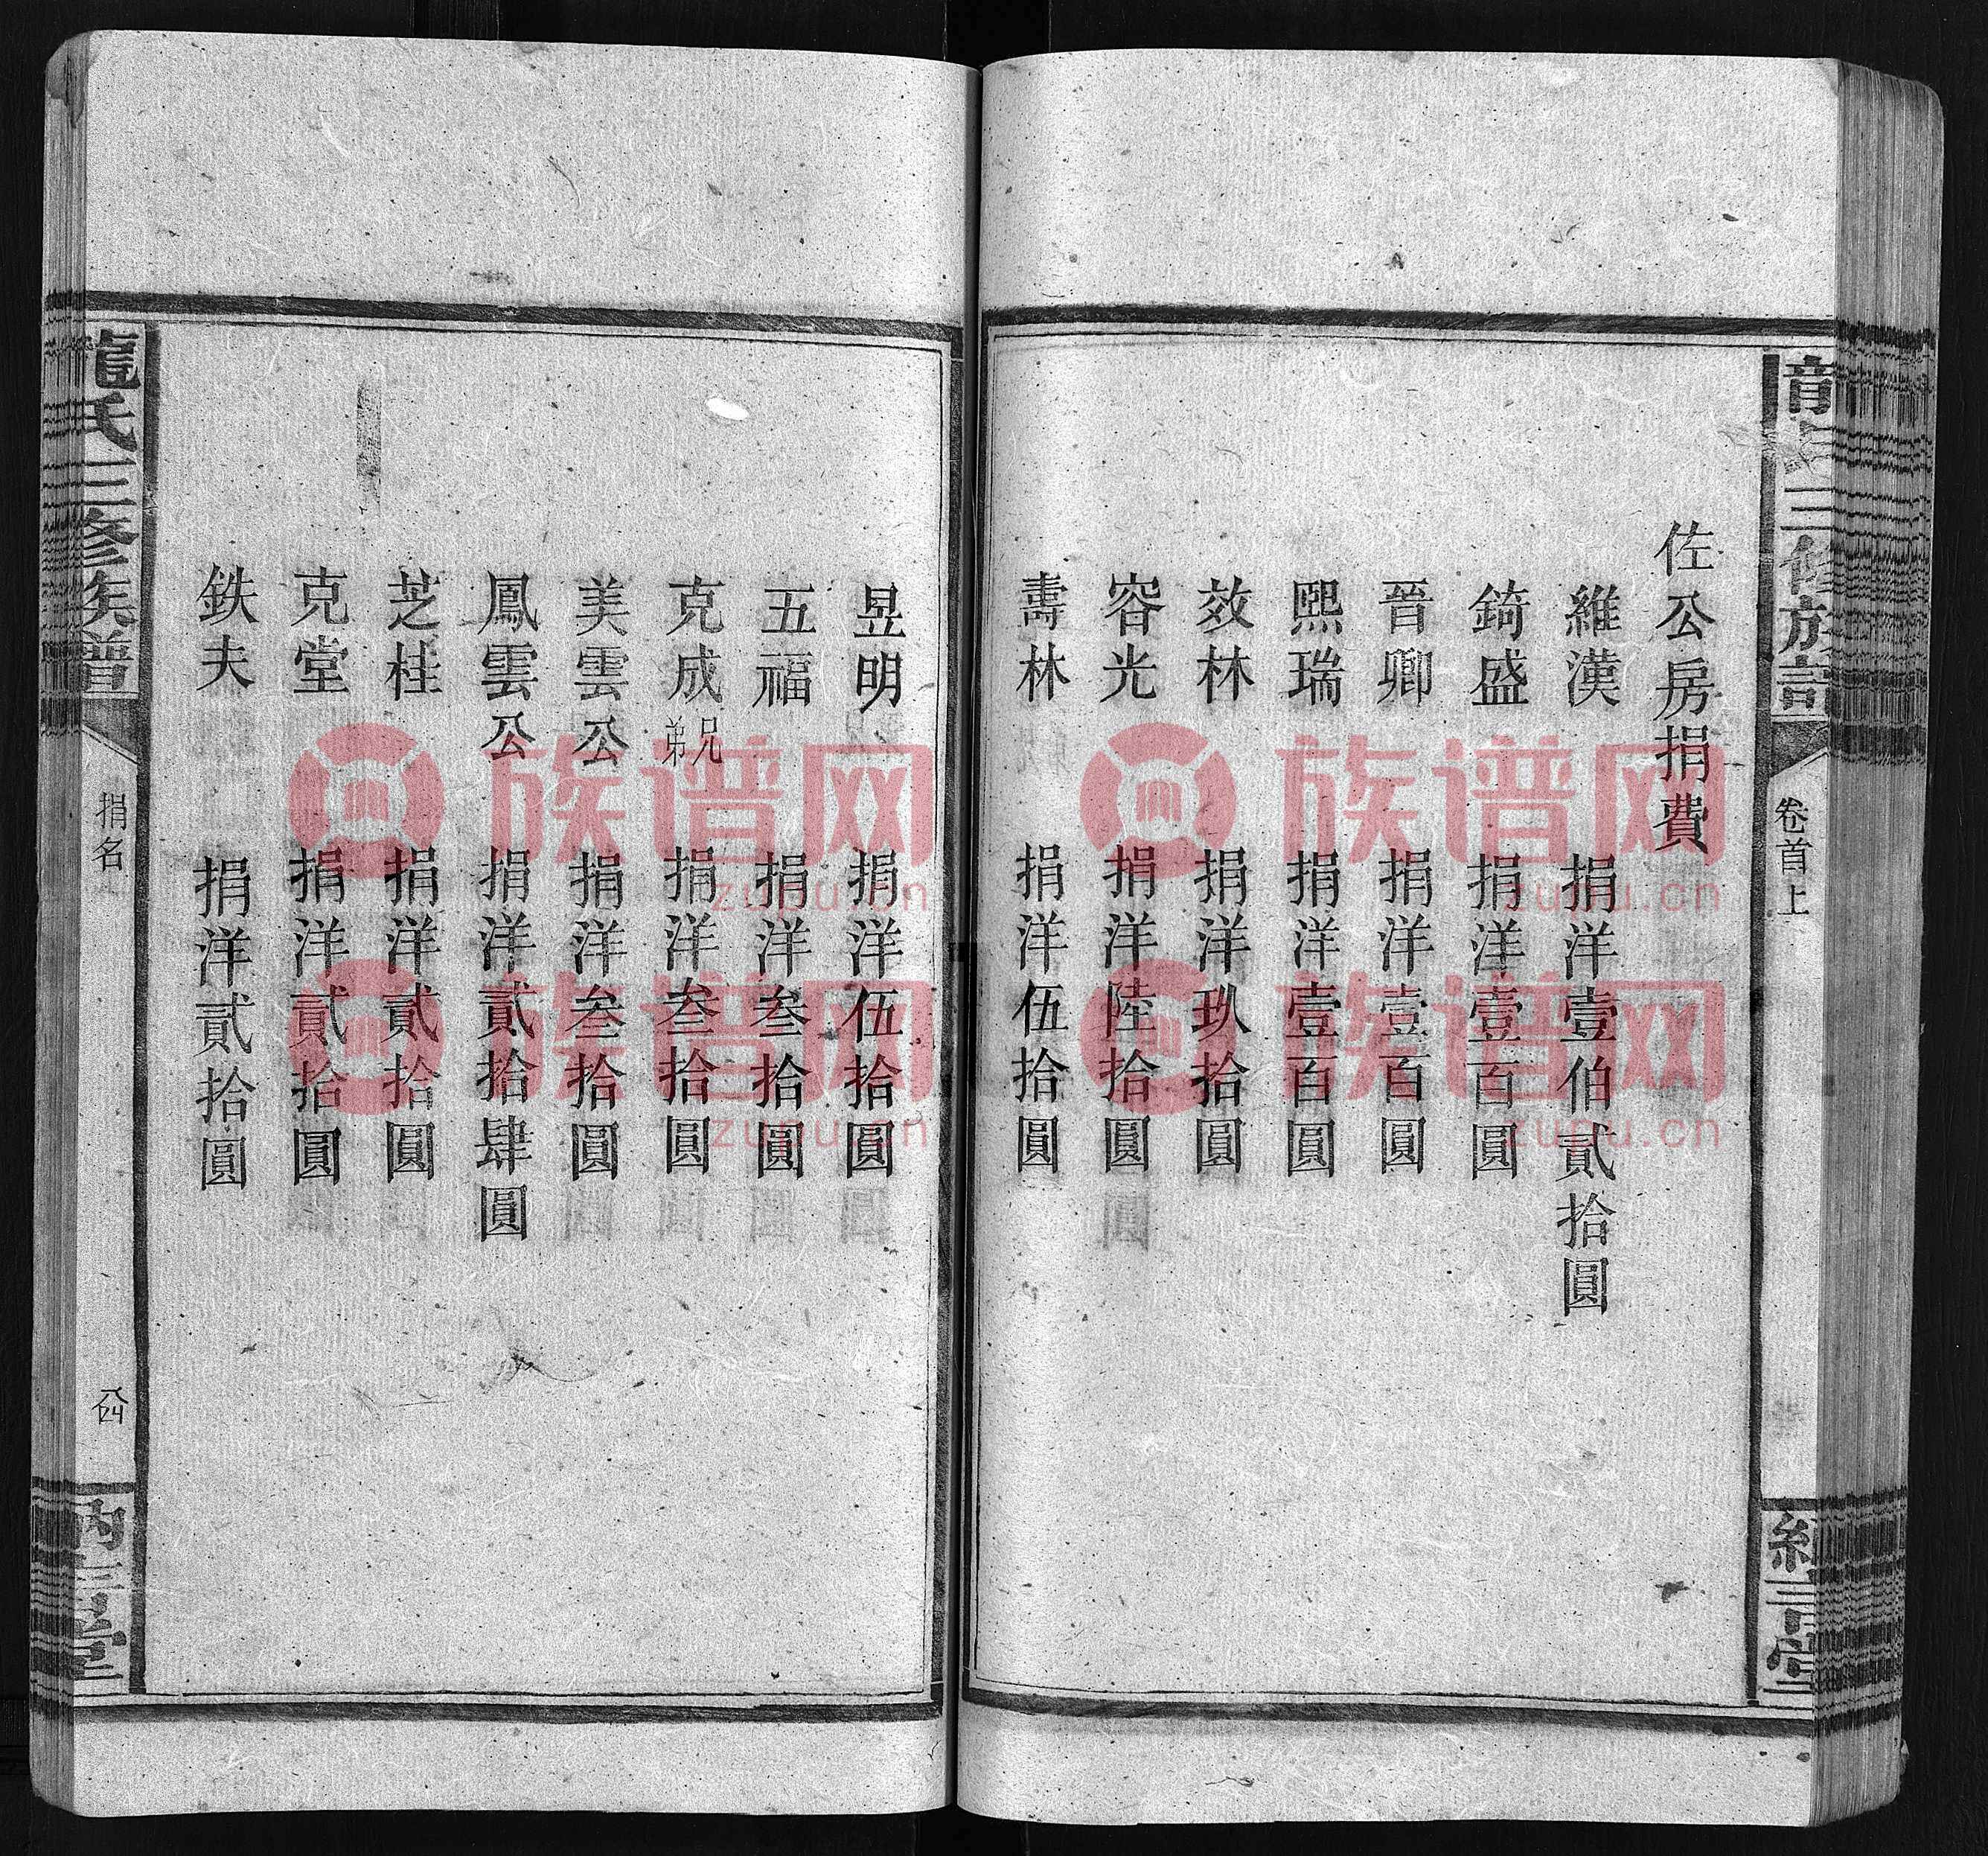 龍氏三修族譜
卷首上
佐公房捐費
維漢 捐洋壹伯貳拾圓
錡盛 捐洋壹百圓
晉卿 捐洋壹百圓
熙瑞 捐洋壹百圓
效林 捐洋玖拾圓
容光 捐洋陸拾圓
壽林 捐洋伍拾圓
昱明 捐洋伍拾圓
五福 捐洋叁拾圓
克成兄弟 捐洋叁拾圓
美雲公 捐洋叁拾圓
鳳雲公 捐洋貳拾肆圓
芝桂 捐洋貳拾圓
克堂 捐洋貳拾圓
鉄夫 捐洋貳拾圓
龍氏三修族譜
捐名
族谱网
zupu.cn
族谱网
zupu.cn
族谱网
zupu.cn
族谱网
zupu.cn